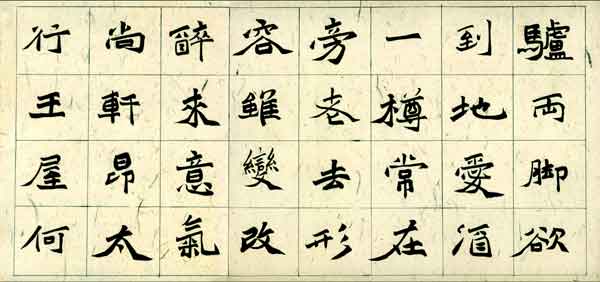 驢両脚欲
到地愛酒
一樽常在
旁老去形
容雖變改
醉来意氣
尚軒昂太
行王屋何